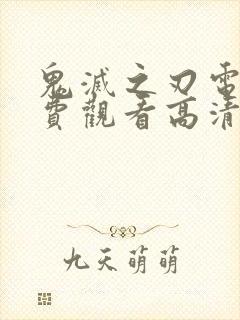 鬼滅之刃電
費觀看高清
九天萌萌